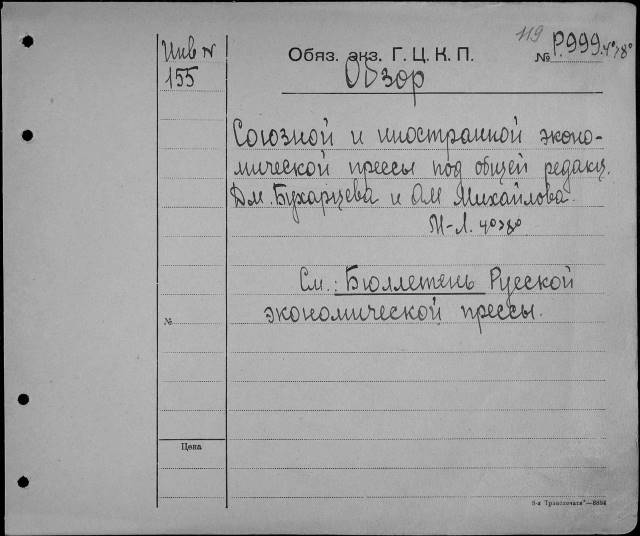 119
Инв N
155
Обяз. экз. Г. Ц. К. П.
№ Р.999. 4°>8°
Обзор
Союзной и иностранной эконо-
мической прессы под общей редакц.
Дм. Бухарцева и Ом Михайлова.
М-Л. 4°>8°
См.: Бюллетень Русской
экономической прессы.
№
Цена
8-я „Транспечати"—8894